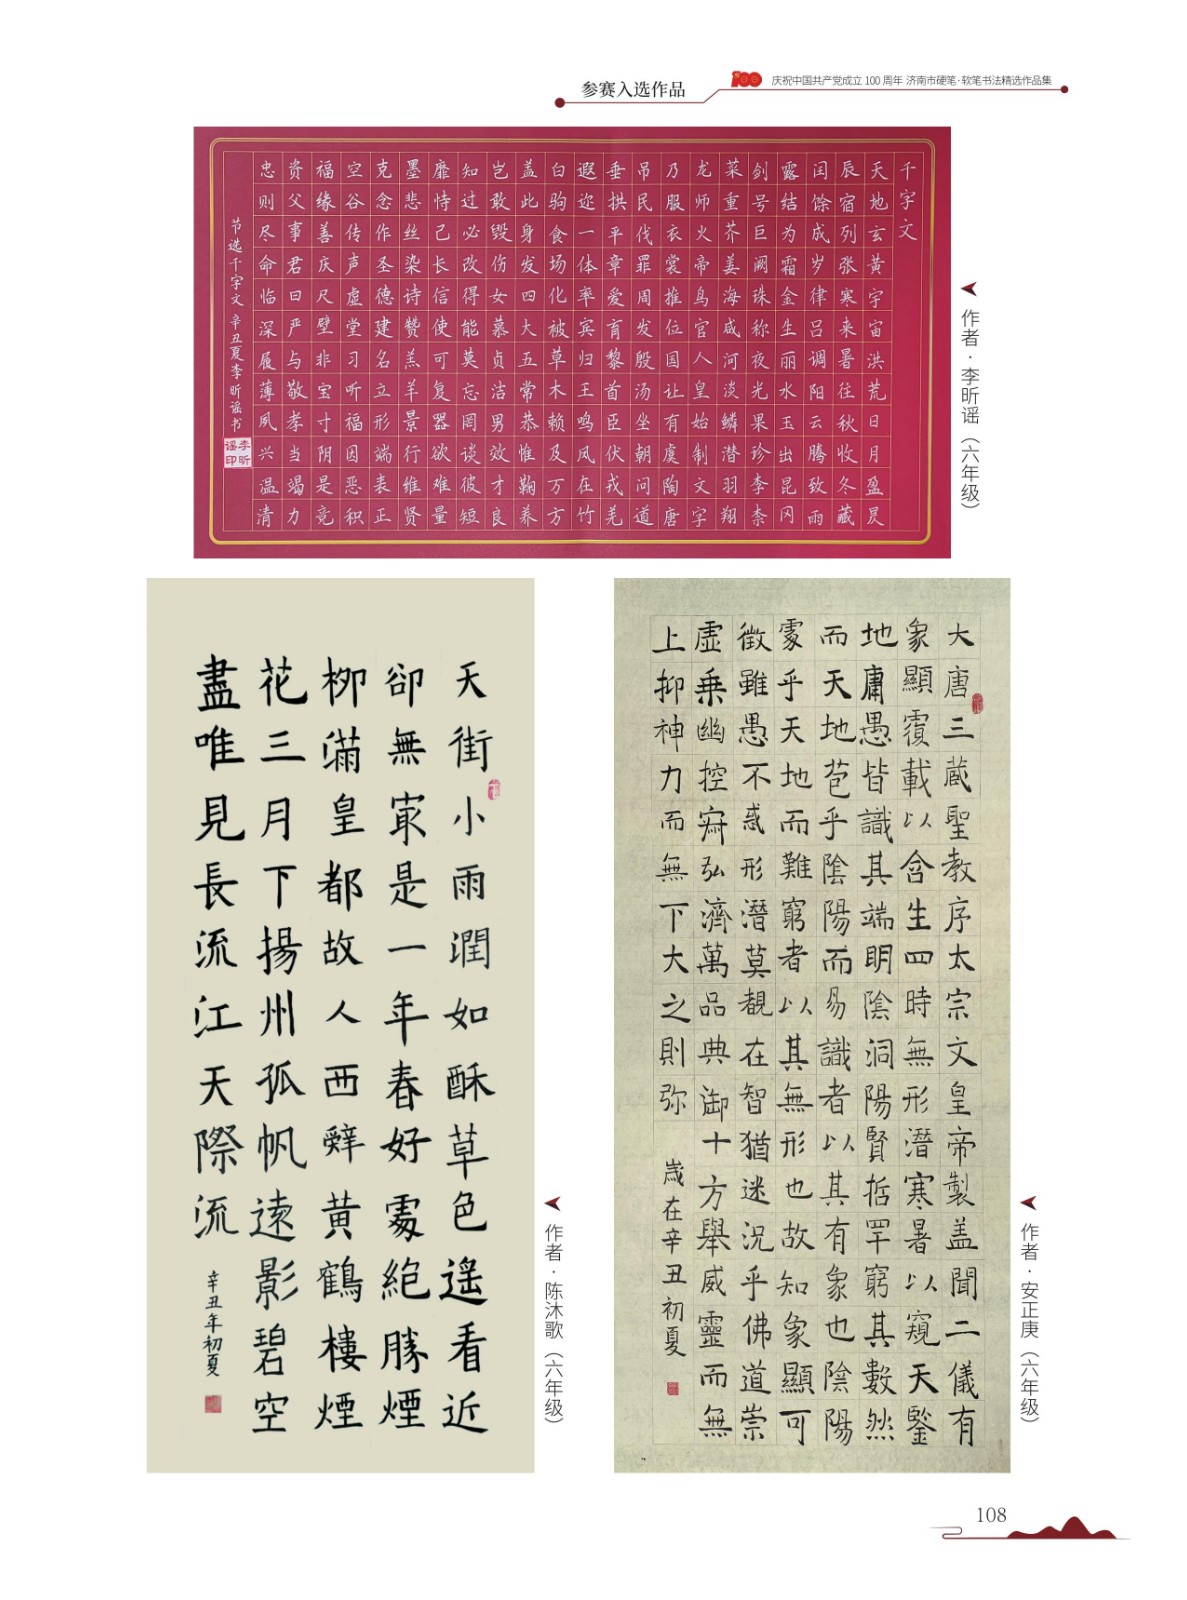 参赛入选作品
100 庆祝中国共产党成立 100 周年 济南市硬笔·软笔书法精选作品集
千字文
天地玄黄宇宙洪荒日月盈昃
辰宿列张寒来暑往秋收冬藏
闰馀成岁律吕调阳云腾致雨
露结为霜金生丽水玉出昆冈
剑号巨阙珠称夜光果珍李柰
菜重芥姜海咸河淡鳞潜羽翔
龙师火帝鸟官人皇始制文字
乃服衣裳推位国让有虞陶唐
吊民伐罪周发殷汤坐朝问道
垂拱平章爱育黎首臣伏戎羌
遐迩一体率宾归王鸣凤在竹
白驹食场化被草木赖及万方
盖此身发四大五常恭惟鞠养
岂敢毁伤女慕贞洁男效才良
知过必改得能莫忘罔谈彼短
靡恃己长信使可复器欲难量
墨悲丝染诗赞羔羊景行维贤
克念作圣德建名立形端表正
空谷传声虚堂习听福因恶积
福缘善庆尺璧非宝寸阴是竞
资父事君曰严与敬孝当竭力
忠则尽命临深履薄夙兴温清
节选千字文 辛丑夏李昕谣书
李昕谣印
作者·李昕谣（六年级）
天街小雨潤如酥草色遥看近
卻無冣是一年春好處絶勝煙
柳滿皇都故人西辭黄鶴樓煙
花三月下揚州孤帆遠影碧空
盡唯見長流江天際流
辛丑年初夏
作者·陈沐歌（六年级）
大唐三蔵聖教序太宗文皇帝製盖聞二儀有
象顯覆載以含生四時無形潛寒暑以窺天鑒
地庸愚皆識其端明陰洞陽賢哲罕窮其數然
而天地苞乎陰陽而易識者以其有象也陰陽
處乎天地而難窮者以其無形也故知象顯可
徵雖愚不惑形潛莫覩在智猶迷況乎佛道崇
虛乗幽控寂弘濟萬品典御十方舉威靈而無
上抑神力而無下大之則弥
歲在辛丑初夏
作者·安正庚（六年级）
108